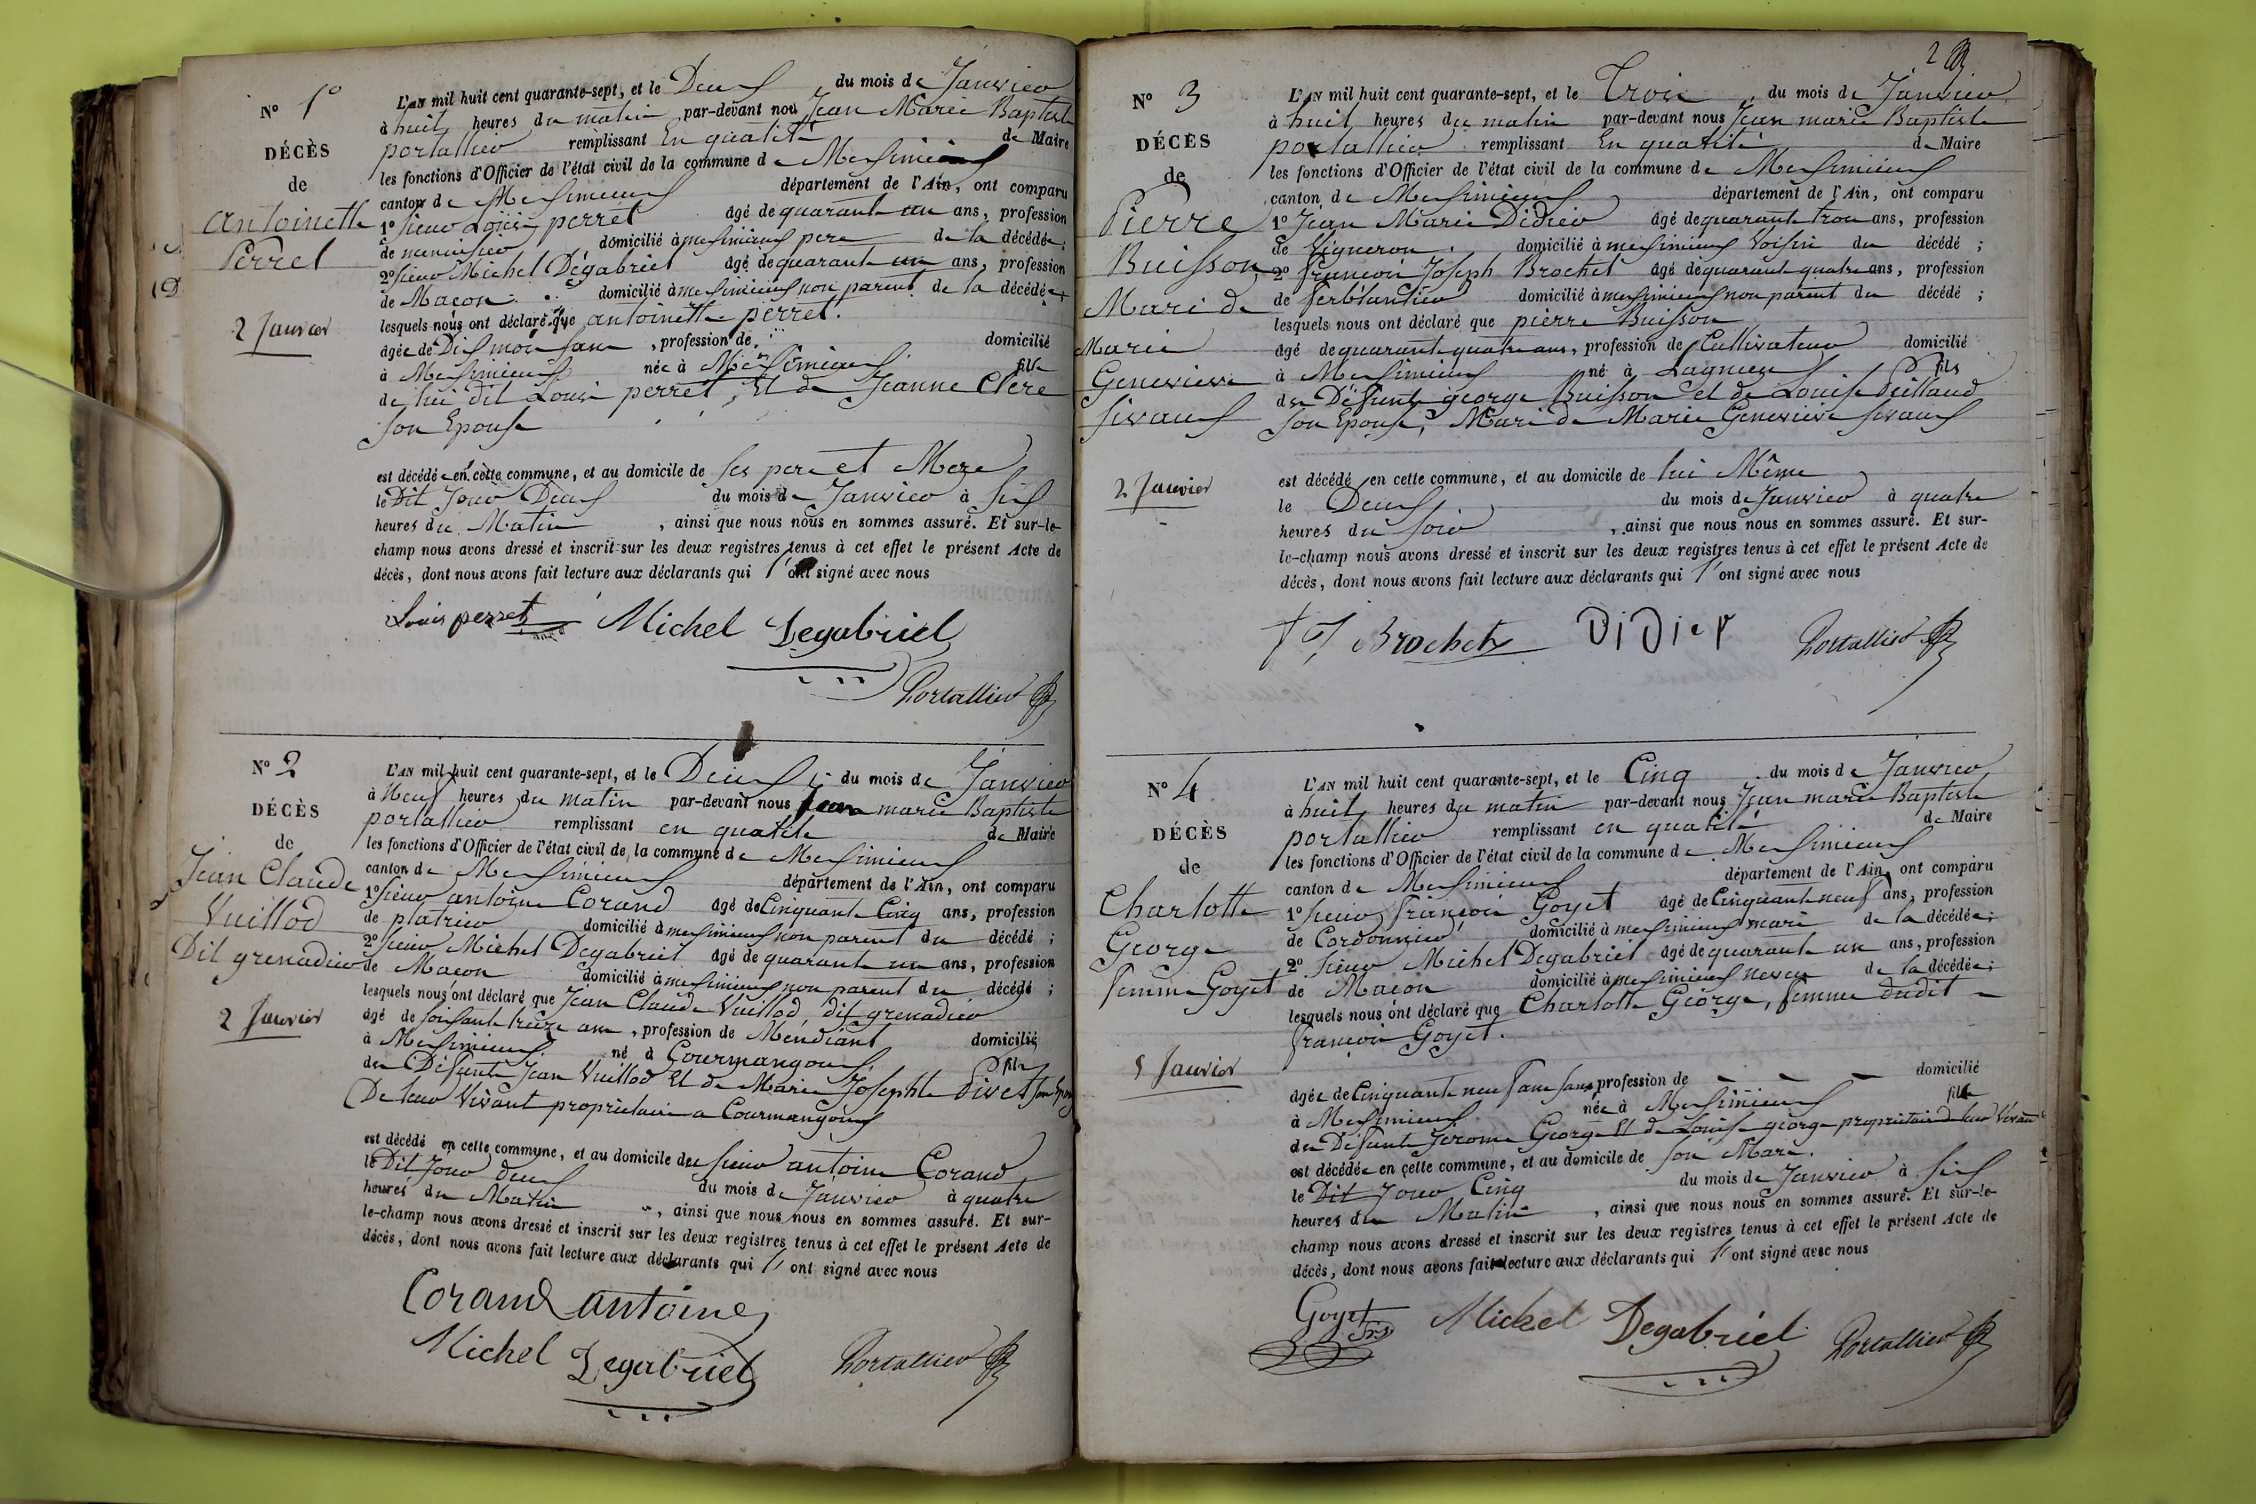 N° 1°
DÉCÈS
de
antoinette
Perret
2 Janvier
L'AN mil huit cent quarante-sept, et le Deux du mois de Janvier
à huit heures du matin par-devant nous Jean Marie Baptiste
portallier remplissant En qualité de Maire
les fonctions d'Officier de l'état civil de la commune de Meximieux
canton de Meximieux département de l'Ain, ont comparu
1° sieur Louis perret âgé de quarante un ans, profession
de menuisier domicilié à meximieux pere de la décédée;
2° sieur Michel Dégabriel âgé de quarante un ans, profession
de Maçon domicilié à meximieux non parent de la décédée
lesquels nous ont déclaré que antoinette perret.
âgée de Dix mois sans, profession de domicilié
à Meximieux née à Meximieux fille
de lui dit Louis perret, Et de Jeanne Clere
son Epouse
est décédée en cette commune, et au domicile de ses pere et Mere
le Dit Jour Deux du mois de Janvier à six
heures du Matin, ainsi que nous nous en sommes assuré. Et sur-le-
champ nous avons dressé et inscrit sur les deux registres tenus à cet effet le présent Acte de
décès, dont nous avons fait lecture aux déclarants qui l'ont signé avec nous
Louis perret Michel Degabriel
Portallier
N° 2
DÉCÈS
de
Jean Claude
Vuillod
Dit grenadier
2 Janvier
L'AN mil huit cent quarante-sept, et le Deux du mois de Janvier
à Neuf heures du matin par-devant nous Jean marie Baptiste
portallier remplissant en qualité de Maire
les fonctions d'Officier de l'état civil de la commune de Meximieux
canton de Meximieux département de l'Ain, ont comparu
1° sieur antoine Corand âgé de Cinquante Cinq ans, profession
de platrier domicilié à meximieux non parent du décédé;
2° sieur Michel Degabriel âgé de quarante un ans, profession
de Maçon domicilié à meximieux non parent du décédé;
lesquels nous ont déclaré que Jean Claude Vuillod, dit grenadier
âgé de soixante treize ans, profession de Mendiant domicilié
à Meximieux né à Courmangoux fils
de Défunt Jean Vuillod Et de Marie Josephte Pivet son Epouse
De leur Vivant propriétaire a Courmangoux
est décédé en cette commune, et au domicile du sieur antoine Corand
le Dit Jour deux du mois de Janvier à quatre
heures du Matin, ainsi que nous nous en sommes assuré. Et sur-
le-champ nous avons dressé et inscrit sur les deux registres tenus à cet effet le présent Acte de
décès, dont nous avons fait lecture aux déclarants qui l'ont signé avec nous
Corand antoine
Michel Degabriel Portallier
2
N° 3
DÉCÈS
de
Pierre
Buisson
Mari de
Marie
Genevieve
Sivaux
2 Janvier
L'AN mil huit cent quarante-sept, et le Trois du mois de Janvier
à huit heures du matin par-devant nous Jean marie Baptiste
portallier remplissant En qualité de Maire
les fonctions d'Officier de l'état civil de la commune de Meximieux
canton de Meximieux département de l'Ain, ont comparu
1° Jean Marie Didier âgé de quarante trois ans, profession
de Vigneron domicilié à meximieux Voisin du décédé;
2° françois Joseph Brochet âgé de quarante quatre ans, profession
de ferblantier domicilié à meximieux non parent du décédé;
lesquels nous ont déclaré que pierre Buisson
âgé de quarante quatre ans, profession de Cultivateur domicilié
à Meximieux né à Lagnieu fils
de Défunt george Buisson et de Louise
son Epouse, Mari de Marie Genevieve Sivaux
est décédé en cette commune, et au domicile de lui Même
le Deux du mois de Janvier à quatre
heures du soir, ainsi que nous nous en sommes assuré. Et sur-
le-champ nous avons dressé et inscrit sur les deux registres tenus à cet effet le présent Acte de
décès, dont nous avons fait lecture aux déclarants qui l'ont signé avec nous
f J Brochet DiDier Portallier
N° 4
DÉCÈS
de
Charlotte
George
femme Goyet
5 Janvier
L'AN mil huit cent quarante-sept, et le Cinq du mois de Janvier
à huit heures du matin par-devant nous Jean marie Baptiste
portallier remplissant en qualité de Maire
les fonctions d'Officier de l'état civil de la commune de Meximieux
canton de Meximieux département de l'Ain, ont comparu
1° sieur françois Goyet âgé de Cinquante neuf ans, profession
de Cordonnier domicilié à meximieux mari de la décédée;
2° sieur Michel Degabriel âgé de quarante un ans, profession
de Maçon domicilié à meximieux neveu de la décédée;
lesquels nous ont déclaré que Charlotte George, femme dudit
françois Goyet.
âgée de Cinquante neuf ans sans profession de domicilié
à Meximieux née à Meximieux fille
de Défunt Jerome George Et de Louise george propriétaire de leur Vivant
est décédée en cette commune, et au domicile de son Mari.
le Dit Jour Cinq du mois de Janvier à six
heures du Matin, ainsi que nous nous en sommes assuré. Et sur-le-
champ nous avons dressé et inscrit sur les deux registres tenus à cet effet le présent Acte de
décès, dont nous avons fait lecture aux déclarants qui l'ont signé avec nous
Goyet fois Michel Degabriel Portallier